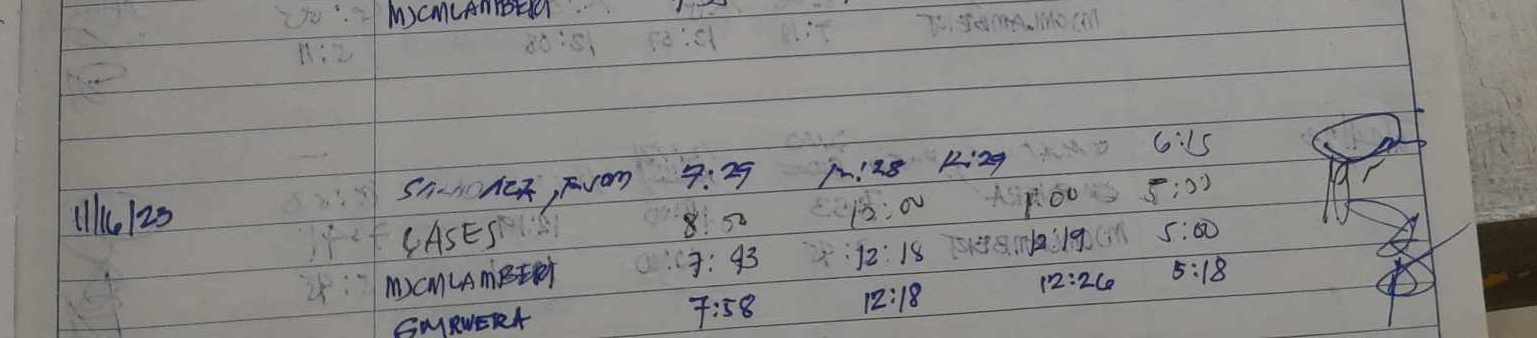 MJCMLAMBERT
7:29 12:28 12:29 6:15
11/16/23 CASES 8:00 12:00 1:00 5:00
MJCMLAMBERT 7:43 12:18 12:19 5:00
GMRWERA 7:58 12:18 12:26 5:18